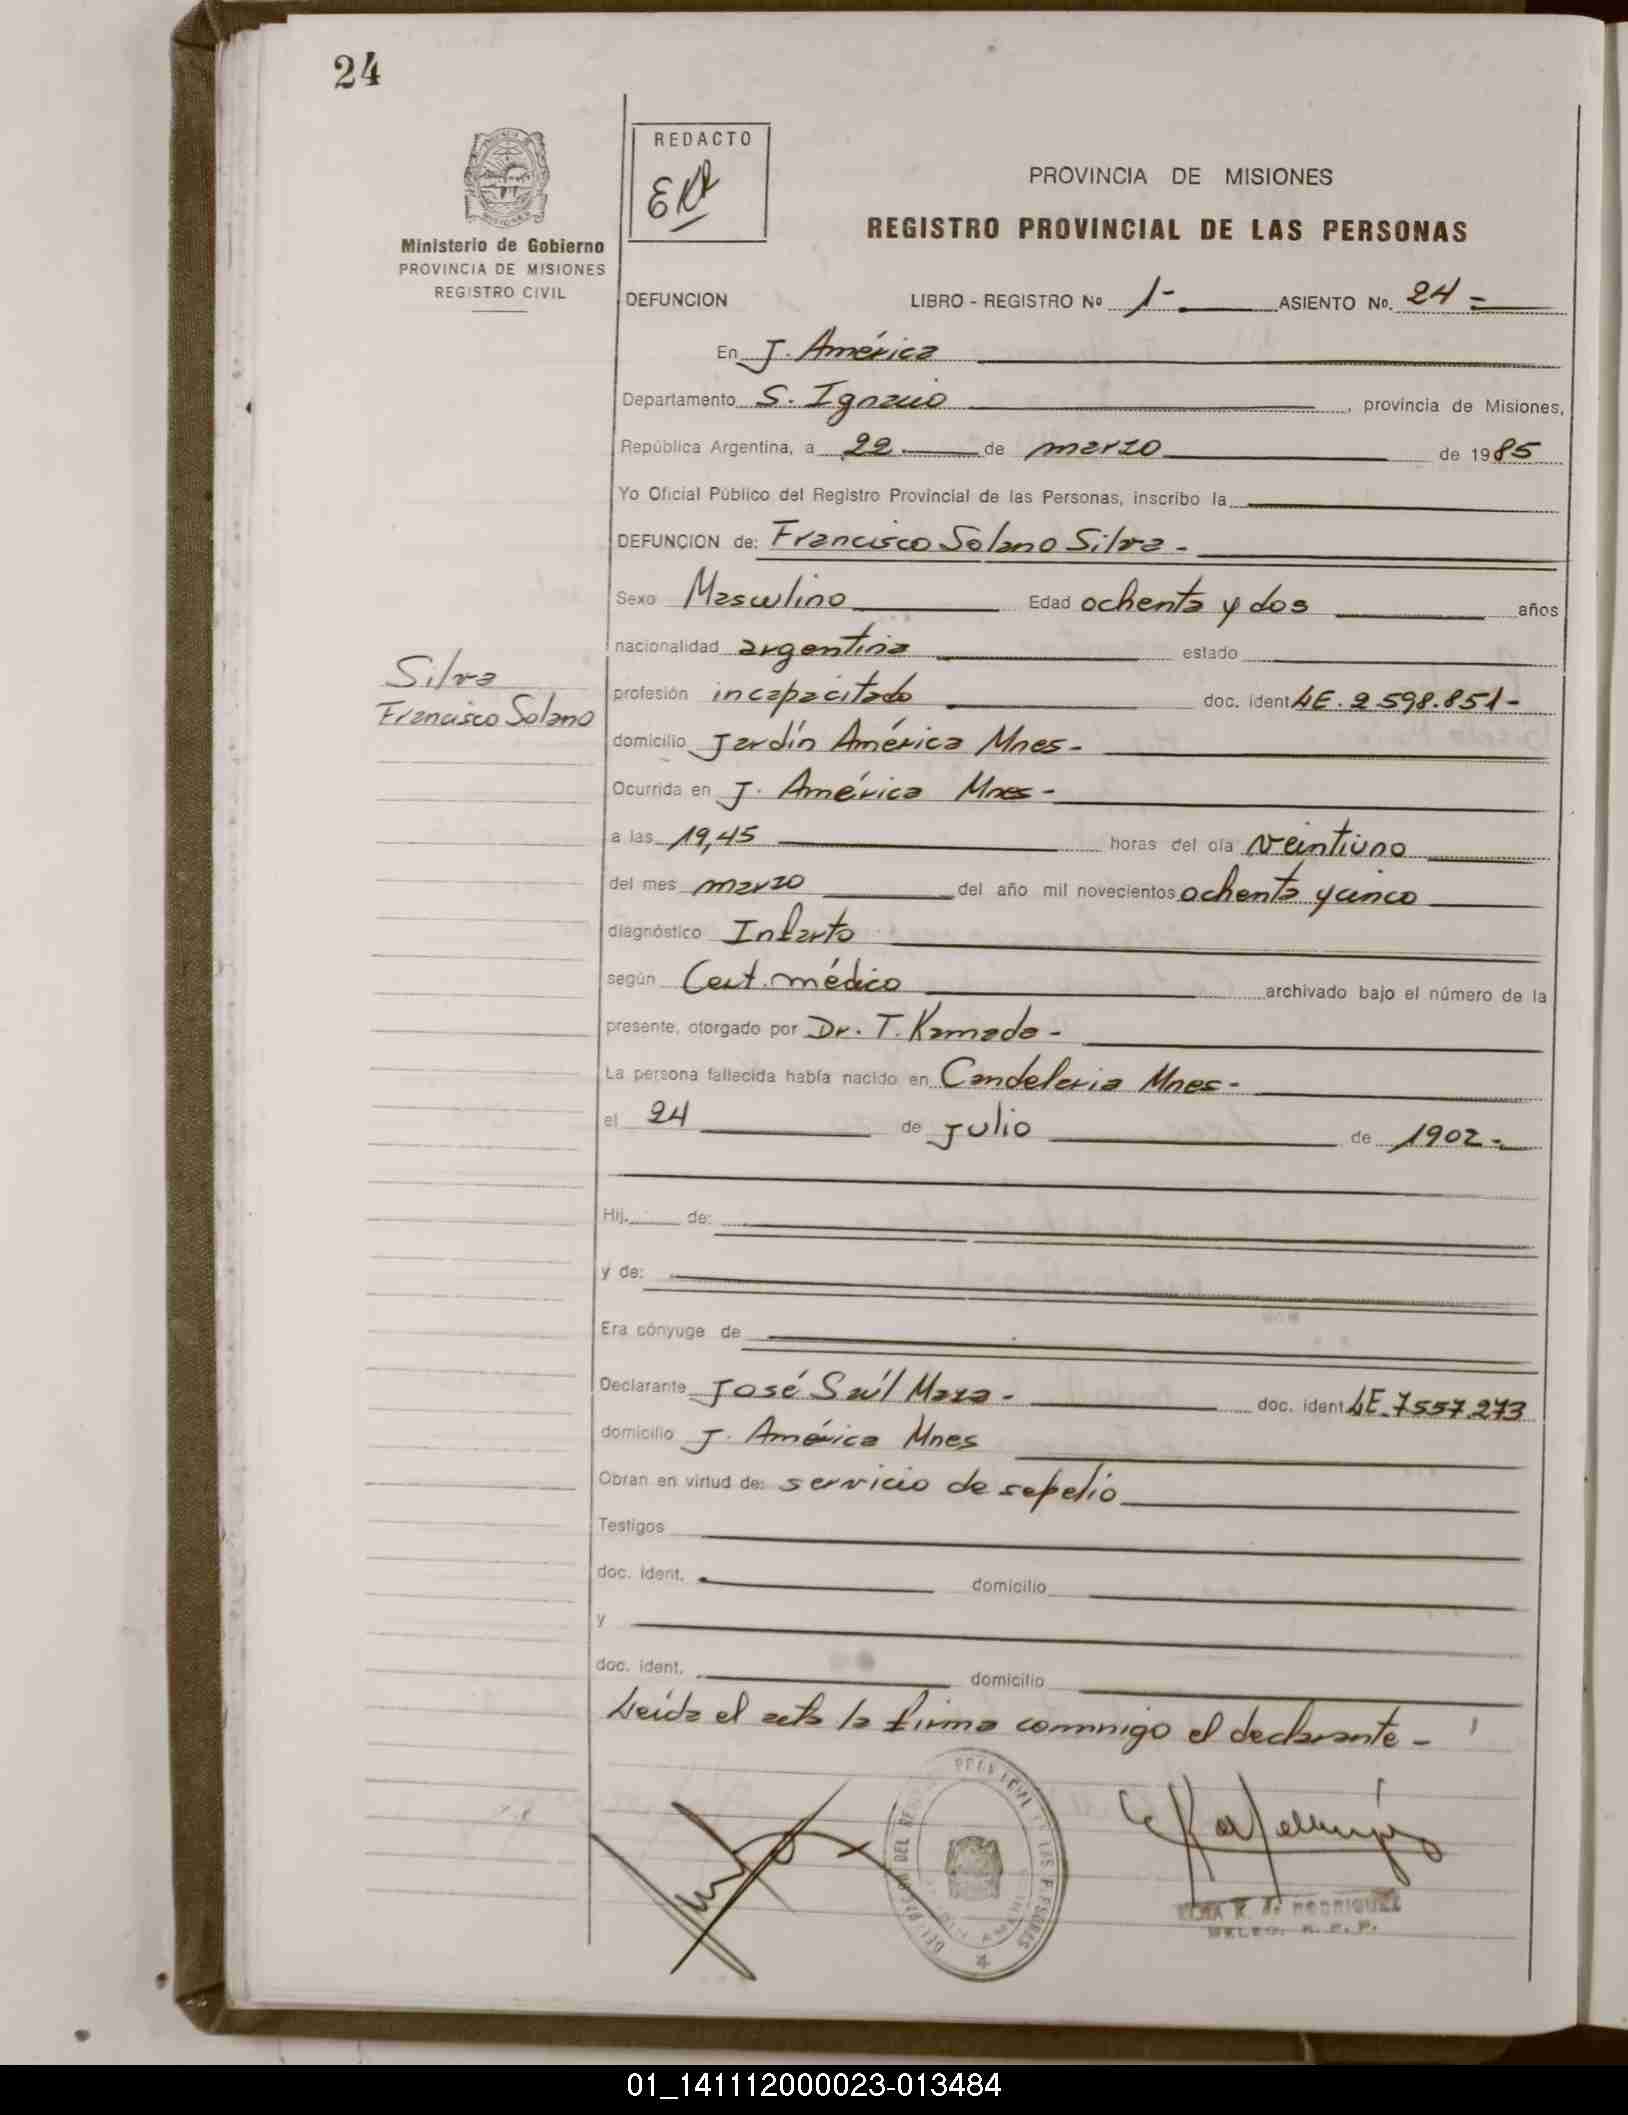 24
REDACTO
PROVINCIA DE MISIONES
REGISTRO PROVINCIAL DE LAS PERSONAS
Ministerio de Gobierno
PROVINCIA DE MISIONES
REGISTRO CIVIL
DEFUNCION LIBRO - REGISTRO Nº 1- ASIENTO No. 24 =
En J. América
Departamento S. Ignacio, provincia de Misiones,
República Argentina, a 22 de marzo de 1985
Yo Oficial Público del Registro Provincial de las Personas, inscribo la
DEFUNCION de: Francisco Solano Silva -
Sexo Masculino Edad ochenta y dos años
nacionalidad argentina estado
Silva
Francisco Solano
profesión incapacitado doc. ident LE. 2.598.851-
domicilio Jardín América Mnes-
Ocurrida en J. América Mnes-
a las 19,45 horas del día veintiuno
del mes marzo del año mil novecientos ochenta y cinco
diagnóstico Infarto
según Cert. médico archivado bajo el número de la
presente, otorgado por Dr. T. Kamada -
La persona fallecida había nacido en Candelaria Mnes-
el 24 de julio de 1902-
Hij. de:
y de:
Era cónyuge de
Declarante José Saúl Maza - doc. ident LE. 7557.273
domicilio J. América Mnes
Obran en virtud de: servicio de sepelio
Testigos
doc. ident. domicilio
y
doc. ident. domicilio
Leída el acta la firma conmigo el declarante -
K. de RODRIGUEZ
DELEG. R. P. P.
01_141112000023-013484